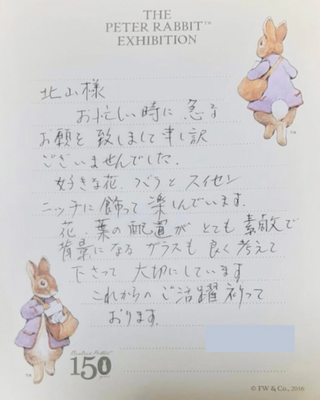 THE
PETER RABBIT™
EXHIBITION
北山様
お忙しい時に 急な
お願を致しまして申し訳
ございませんでした。
好きな花、バラとスイセン
ニッチに飾って楽しんでいます。
花、葉の配置がとても素敵で
背景になるガラスも良く考えて
下さって大切にしています
これからのご活躍祈って
おります。
150
© FW & Co., 2016